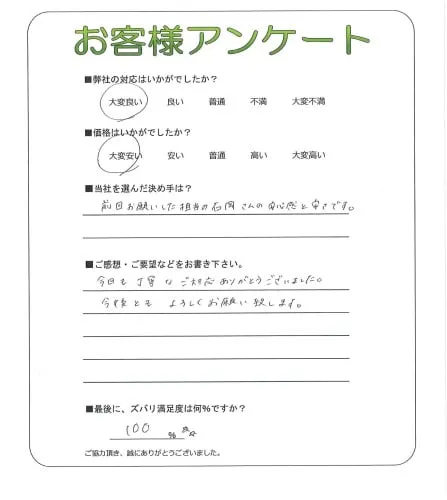 お客様アンケート
■弊社の対応はいかがでしたか?
大変良い 良い 普通 不満 大変不満
■価格はいかがでしたか?
大変安い 安い 普通 高い 大変高い
■当社を選んだ決め手は?
前回お願いした担当の石岡さんの安心感と安さです。
■ご感想・ご要望などをお書き下さい。
今回も丁寧なご対応ありがとうございました。
今後とも よろしくお願い致します。
■最後に、ズバリ満足度は何%ですか?
100 %☆☆
ご協力頂き、誠にありがとうございました。